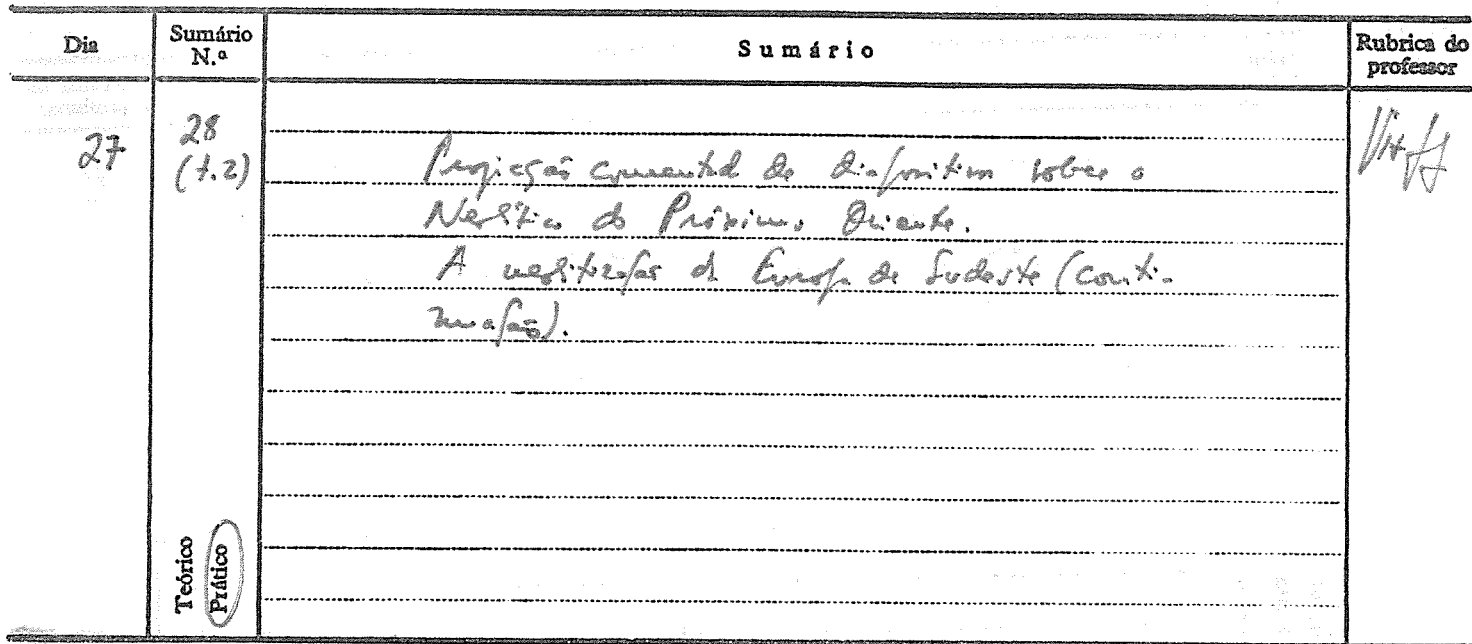 Dia
Sumário N.º
Sumário
Rubrica do professor
27
28
(t.2)
Projecção comentada de diapositivos sobre o
Neolítico do Próximo Oriente.
A neolitização da Europa de Sudeste (conti-
nuação).
Teórico
Prático